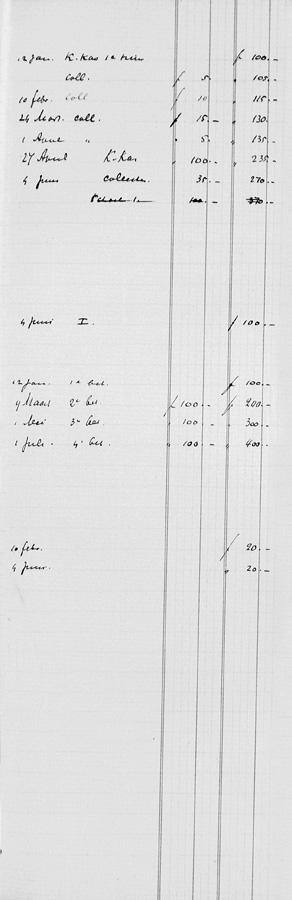 12 Jan. K. Kas 1e f 100.-
coll. f 5 " 105.-
10 febr. coll f 10 " 115.-
24 Mrt. coll. f 15.- " 130.-
1 April " " 5.- " 135.-
27 April K. Kas " 100.- " 235.-
4 Juni Collecte. 35.- " 270.-
100.- 370.-
4 Juni I. f 100.-
12 Jan. 1e bet. f 100.-
9 Maart 2e bet. f 100.- f 200.-
1 Mei 3e bet. " 100.- " 300.-
1 Juli. 4e bet. " 100.- " 400.-
10 febr. f 20.-
4 Juni. " 20.-